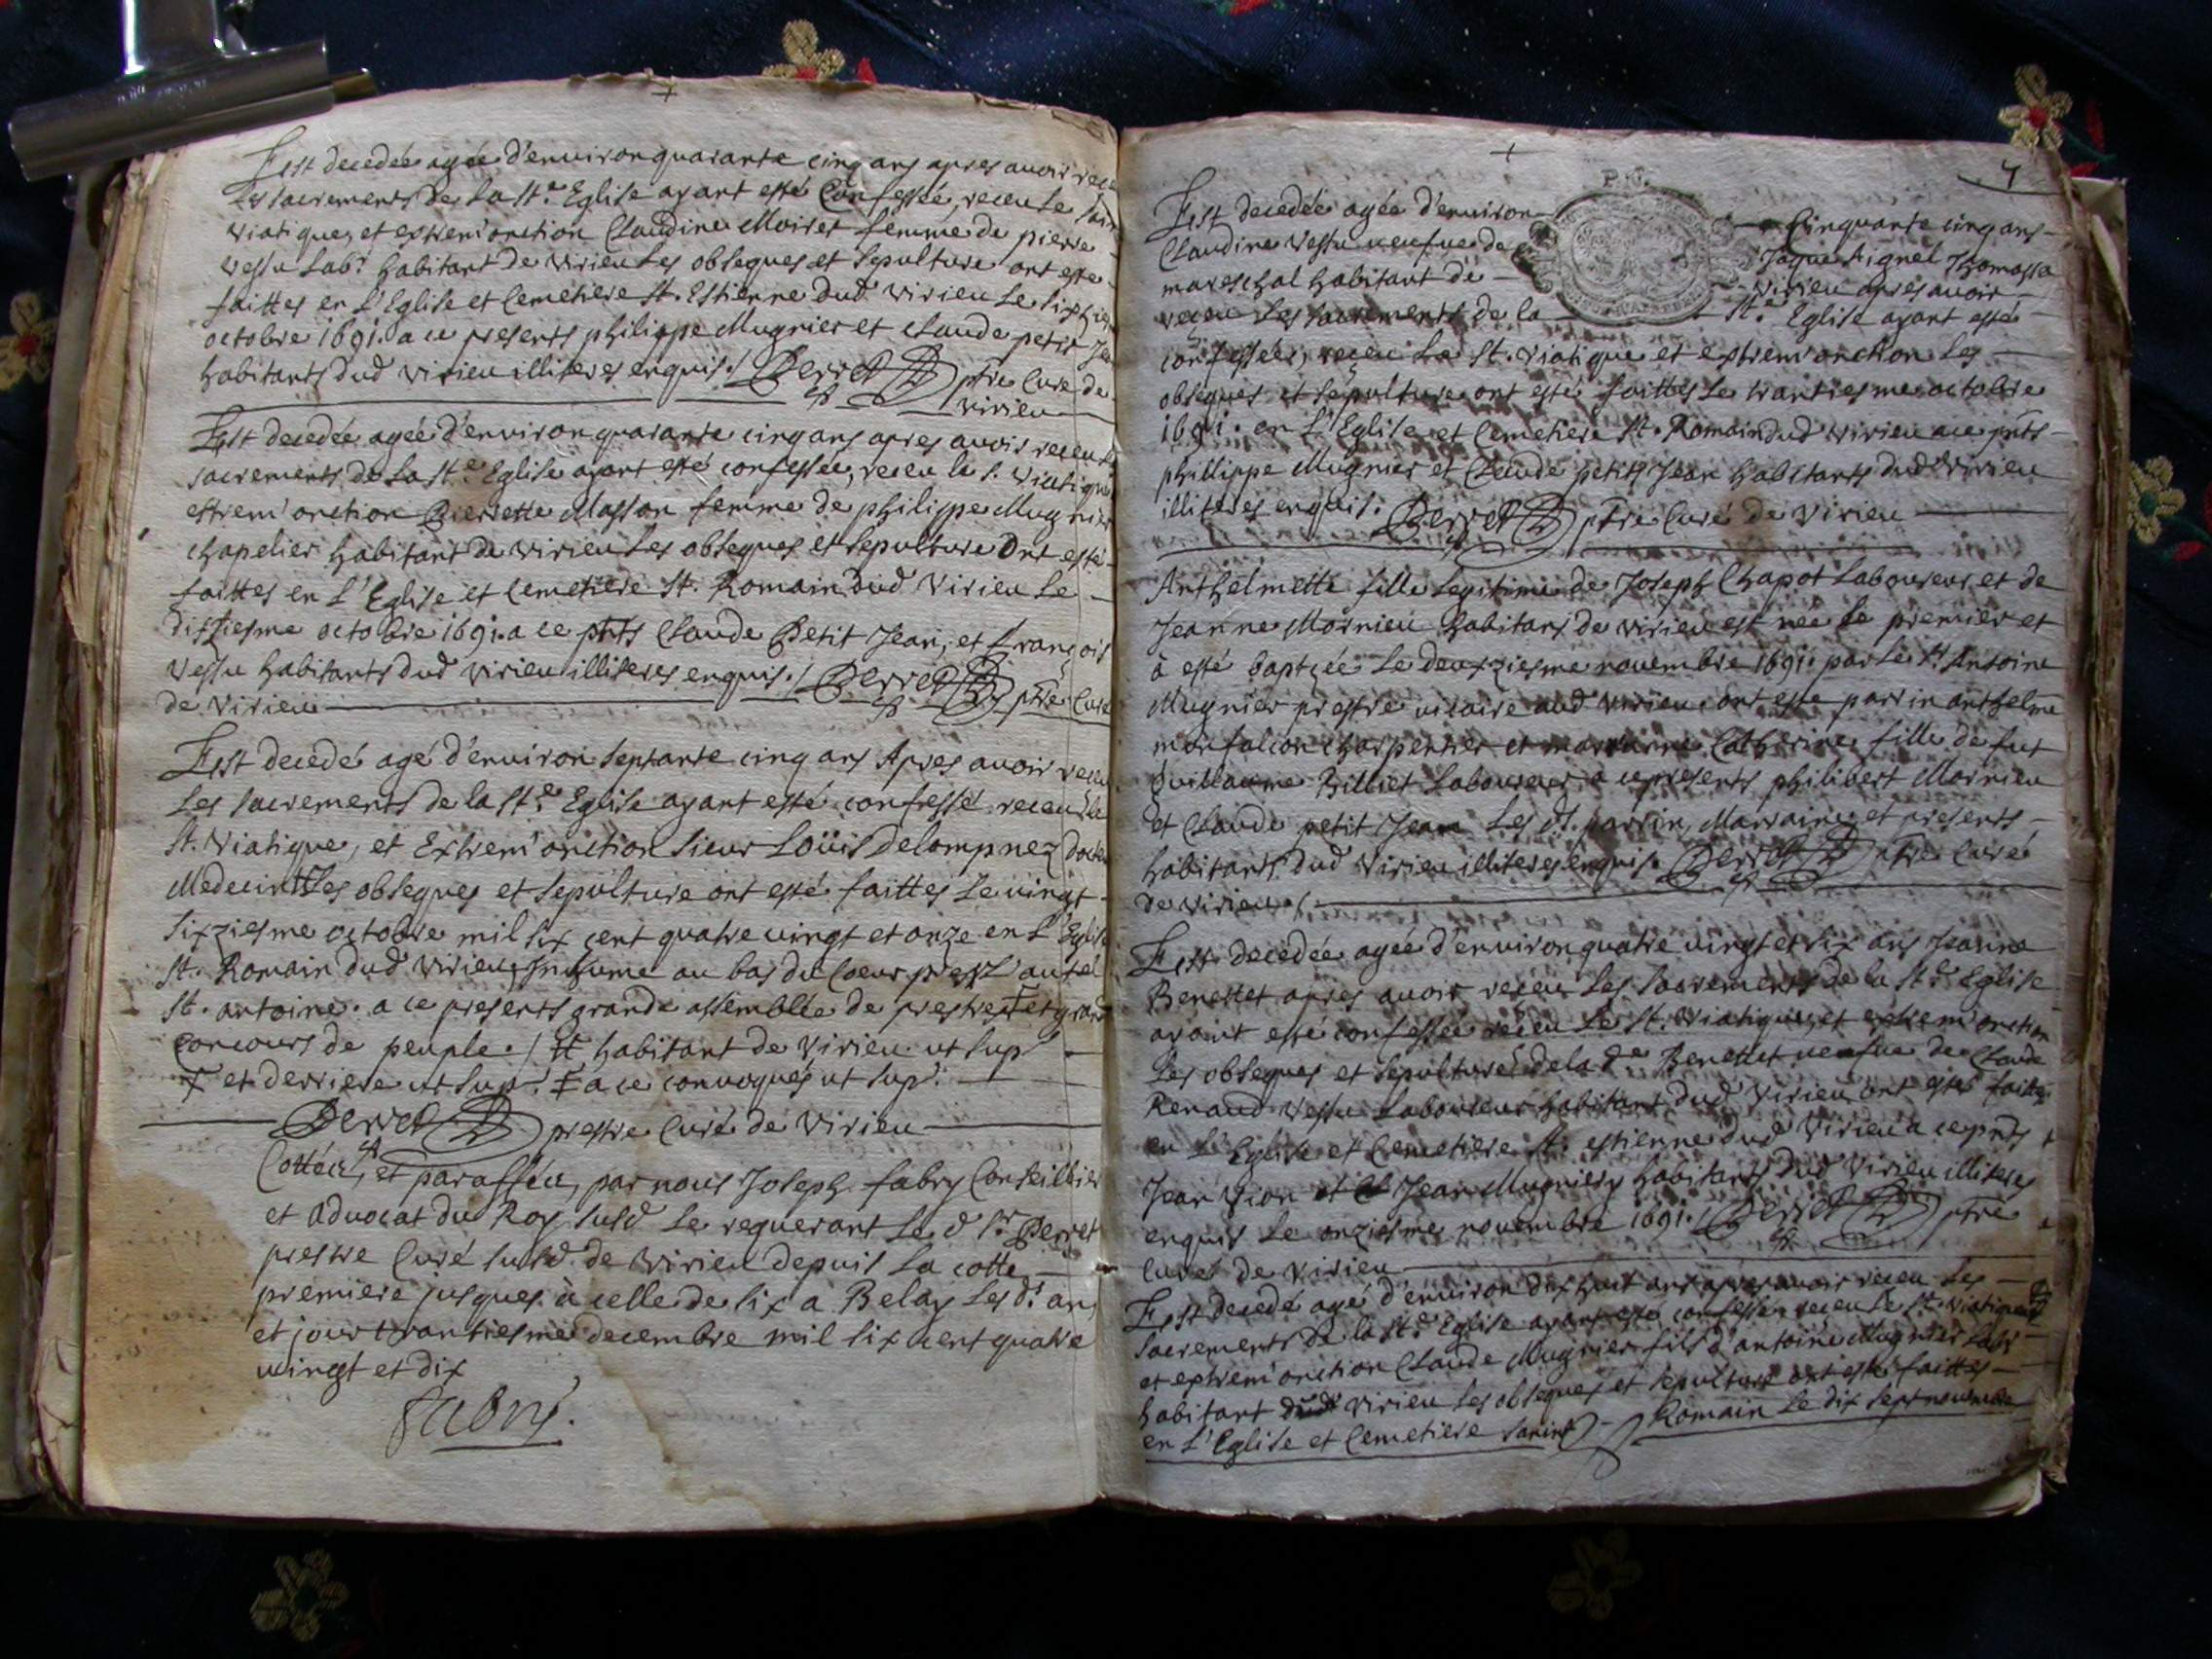 Est decedée agée d'environ quarante cinq ans apres avoir receu
les sacrements de la Ste. Eglise ayant esté Confessée, receu le
viatique, et extrem'onction Claudine Moiret femme de pierre
vessu Labr. habitant de virieu les obseques et sepulture ont esté
faittes en L'Eglise et Cemetiere St. Estienne dud virieu le
octobre 1691. a ce presents philippe Mugnier et Claude petit Jean
habitants dud virieu illiteres enquis. / Perret ptre Curé de
virieu
Est decedée agée d'environ quarante cinq ans apres avoir receu
sacrements de la Ste. Eglise ayant esté confessée, receu le s. viatique
extrem'onction Pierrette Masson femme de philippe Mugnier
chapelier habitant de virieu Les obseques et sepulture Ont esté
faittes en L'Eglise et Cemetiere St. Romain dud Virieu Le
dixziesme octobre 1691. a ce pnts Claude Petit Jean, et François
vessu habitants dud virieu illiteres enquis. / Perret ptre Curé
de virieu
Est decedé agé d'environ septante cinq ans Apres avoir receu
Les sacrements de la Ste. Eglise ayant esté confessé receu le
St. Viatique, et Extrem'onction sieur Loüis Delompnez
Medecin Les obseques et sepulture ont esté faittes Le vingt
sixziesme octobre mil six cent quatre vingt et onze en L'Eglise
St. Romain dud virieu, Inhumé au bas du Coeur pres L'autel
St. antoine. a ce presents grande assemblée de prestres et grand
Concours de peuple. / habitant de virieu ut sup
et derriere ut sup. a ce convoqués ut sup.
Perret prestre Curé de virieu
Cottée, et paraffée, par nous Joseph fabry Conseillier
et Advocat du Roy susd Le requerant Le d sr. Perret
prestre Curé susd. de virieu depuis La cotte
premiere jusques à celle de six a Belay Les ds. an
et jour trantiesme decembre mil six cent quatre
vingt et dix
fabry.
7
Est decedée agée d'environ Cinquante cinq ans
Claudine vessu veufue de Jaque Aignel Thomassa
mareschal habitant de virieu apres avoir
receu Les sacrements de la Ste. Eglise ayant esté
confessée, receu Le St. viatique et extrem'onction Les
obseques et sepulture ont esté faittes Le trantiesme octobre
1691. en L'Eglise et Cemetiere St. Romain dud virieu a ce pnts
phillippe Mugnier et Claude petit Jean habitants dud virieu
illiteres enquis. Perret ptre Curé de virieu
Anthelmette fille Legitime de Joseph Chapot Laboureur et de
Jeanne Mornieu habitans de virieu est née Le premier et
à esté baptzée Le deuxziesme novembre 1691. par Le sr Antoine
Mugnier prestre vicaire aud virieu. ont este parrin anthelme
monfalcon charpentier et marrainne Catherine fille de fut
Guillaume Billiet Laboureur, a ce presents philibert Mornieu
et Claude petit Jean Les ds. parrin, Marraine et presents
habitants dud virieu illiteres enquis. Perret ptre Curé
de virieu. /
Est decedée agée d'environ quatre vingt et six ans Jeanne
Benettet apres avoir receu Les sacrements de la Ste Eglise
ayant esté confessée receu Le St. viatique, et extrem'onction
Les obseques et sepulture de la de Benettet veufue de Claude
Renaud vessu Laboureur habitant dud virieu ont esté faittes
en L'Eglise et Cemetiere St. estienne dud virieu a ce pnts
Jean vion et Jean Mugnier habitants dud virieu illiteres
enquis Le onziesme novembre 1691. / Perret ptre
Curé de virieu
Est decedé agé d'environ dix huit ans apres avoir receu Les
sacrements de la Ste Eglise ayant esté confessé receu Le St. viatique
et extrem'onction Claude Mugnier fils d'antoine Mugnier Labr
habitant dud virieu Les obseques et sepulture ont esté faittes
en L'Eglise et Cemetiere saint Romain Le dix sept novembre